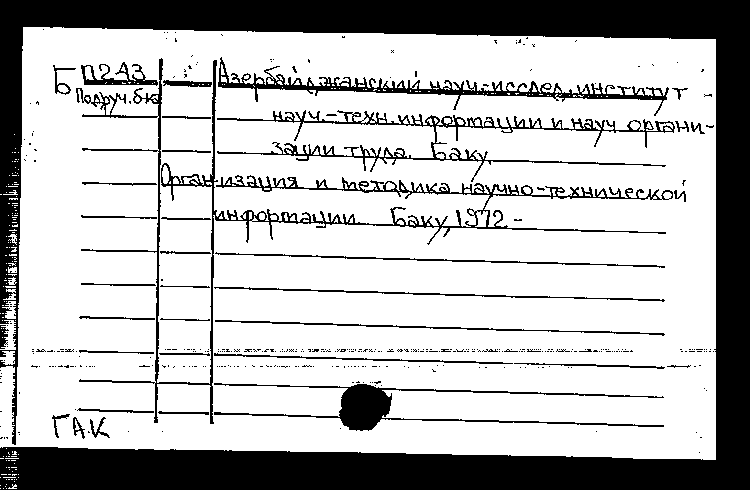 Б П2АЗ Азербайджанский науч.-исслед. институт
Подруч.б-ка
науч.-техн. информации и науч. органи-
зации труда. Баку.
Организация и методика научно-технической
информации. Баку, 1972 -
ГАК